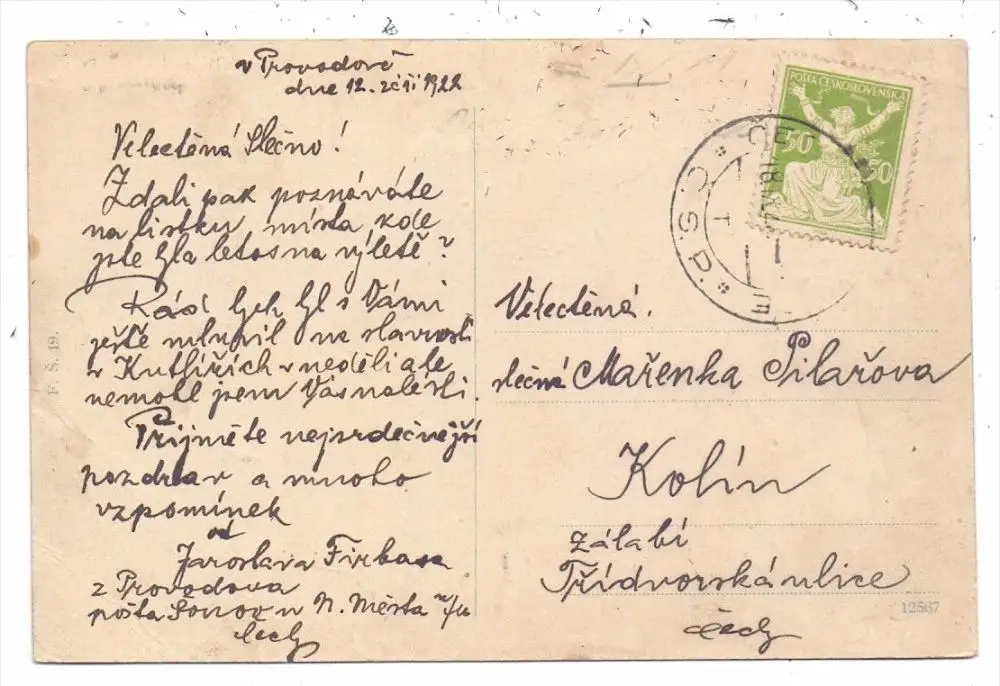 v Provodově
dne 12. září 1922
Velectěná Slečno!
Zdali pak poznáváte
na lístku místa kde
jste byla letos na výletě?
Rád bych byl s Vámi
ještě mluvil na slavnosti
v Kutlířích v neděli ale
nemohl jsem Vás nalésti.
Přijměte nejsrdečnější
pozdrav a mnoho
vzpomínek
od
Jaroslava Firbasa
z Provodova
pošta Šonov u N. Města n/M
Čechy
F. Š. 19.
POŠTA ČESKOSLOVENSKA
50 50
Velectěná.
slečna Mařenka Pilařova
Kolín
Zálabí
Třídvorská ulice
Čechy
12567